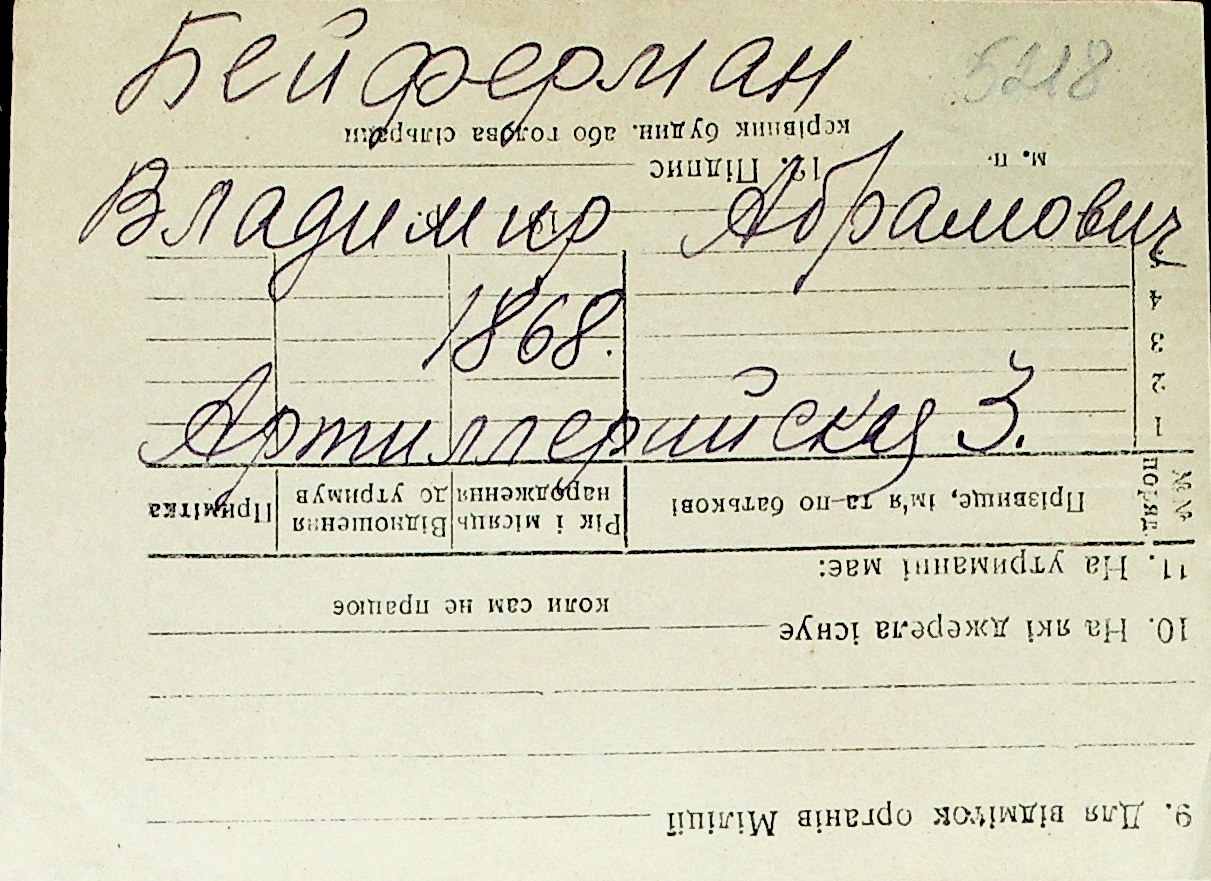 Бейферман
5218
Владимир Абрамович
1868.
Артиллерийская 3.
9. Для відміток органів Міліції
10. На які джерела існує
коли сам не працює
11. На утриманні має:
№№ поряд. Прізвище, ім'я та по батькові Рік і місяць народження Відношення до утримув Примітка
1
2
3
4
19 р.
м. п. 12. Підпис
керівник будин. або голова сільради